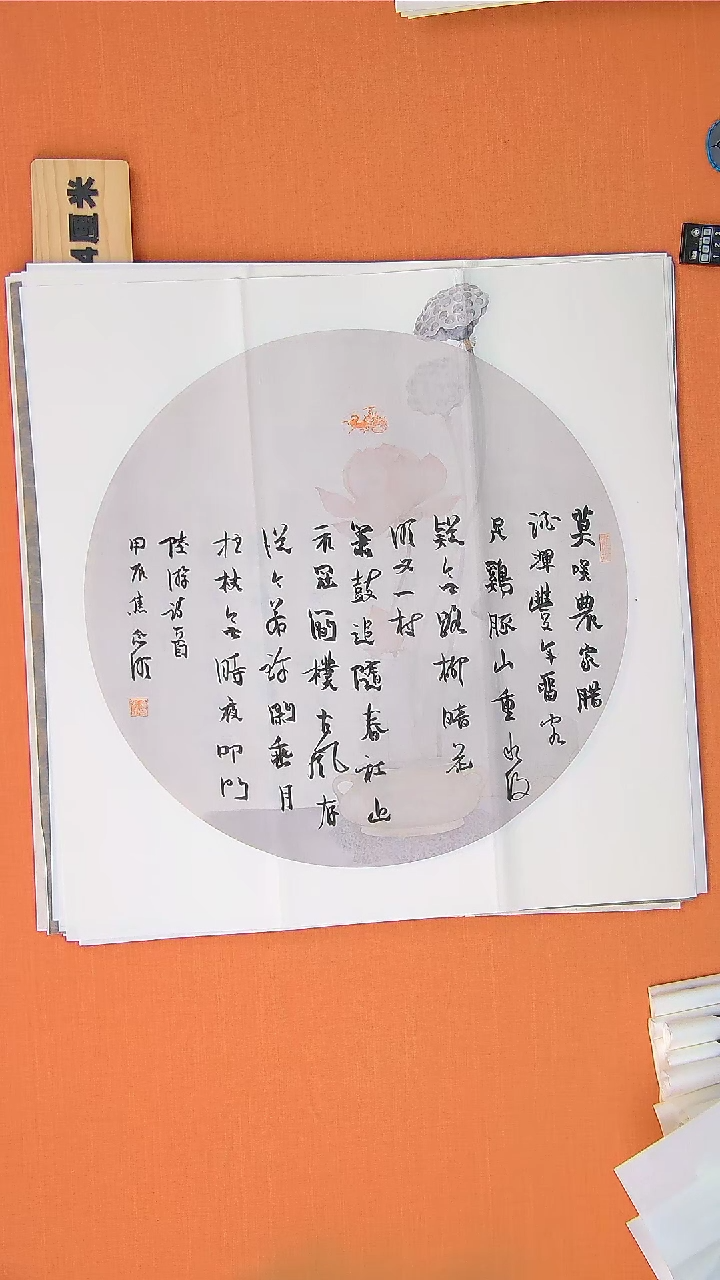 4厘米
莫笑農家臘
酒渾豐年留客
足鷄豚山重水複
疑無路柳暗花
明又一村
簫鼓追隨春社近
衣冠簡樸古風存
從今若許閑乘月
拄杖無時夜叩門
陸游詩一首
甲辰焦